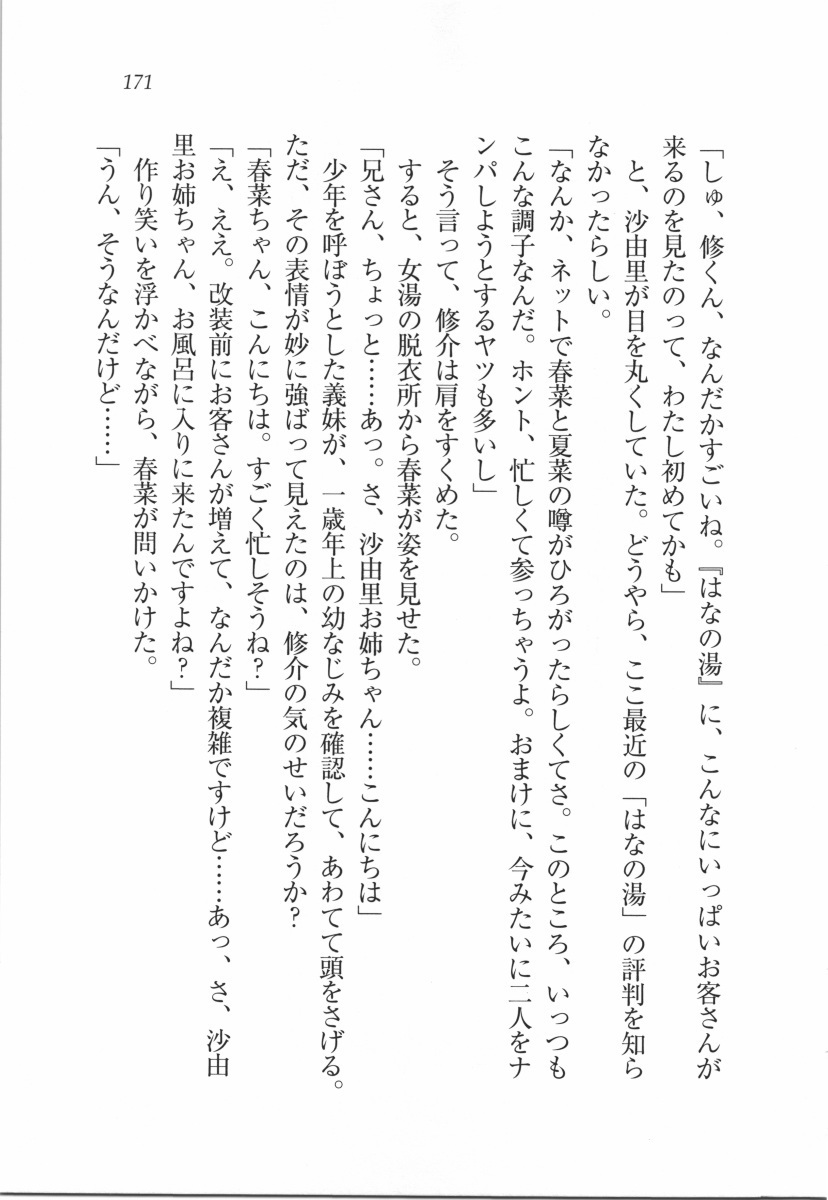 171
「しゅ、修くん、なんだかすごいね。『はなの湯』に、こんなにいっぱいお客さんが
来るのを見たのって、わたし初めてかも」
と、沙由里が目を丸くしていた。どうやら、ここ最近の「はなの湯」の評判を知ら
なかったらしい。
「なんか、ネットで春菜と夏菜の噂がひろがったらしくてさ。このところ、いっつも
こんな調子なんだ。ホント、忙しくて参っちゃうよ。おまけに、今みたいに二人をナ
ンパしようとするヤツも多いし」
そう言って、修介は肩をすくめた。
すると、女湯の脱衣所から春菜が姿を見せた。
「兄さん、ちょっと……あっ。さ、沙由里お姉ちゃん……こんにちは」
少年を呼ぼうとした義妹が、一歳年上の幼なじみを確認して、あわてて頭をさげる。
ただ、その表情が妙に強ばって見えたのは、修介の気のせいだろうか？
「春菜ちゃん、こんにちは。すごく忙しそうね？」
「え、ええ。改装前にお客さんが増えて、なんだか複雑ですけど……あっ、さ、沙由
里お姉ちゃん、お風呂に入りに来たんですよね？」
作り笑いを浮かべながら、春菜が問いかけた。
「うん、そうなんだけど……」